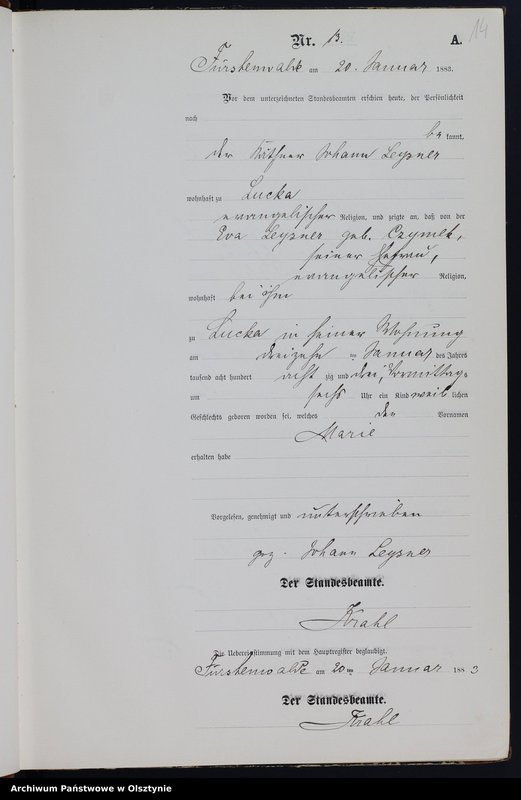 14
Nr. 13. A.
Fürstenwalde am 20. Januar 1883.
Vor dem unterzeichneten Standesbeamten erschien heute, der Persönlichkeit
nach
be kannt,
der Käthner Johann Leyzner
wohnhaft zu Lucka
evangelischer Religion, und zeigte an, daß von der
Eva Leyzner geb. Czymek,
seiner Ehefrau,
evangelischer Religion,
wohnhaft bei ihm
zu Lucka in seiner Wohnung
am dreizehn ten Januar des Jahres
tausend acht hundert acht zig und drei, Vormittags
um sechs Uhr ein Kind weib lichen
Geschlechts geboren worden sei, welches den Vornamen
Marie
erhalten habe
Vorgelesen, genehmigt und unterschrieben
gez. Johann Leyzner
Der Standesbeamte.
Krahl
Die Uebereinstimmung mit dem Hauptregister beglaubigt.
Fürstenwalde am 20ten Januar 1883
Der Standesbeamte.
Krahl
Archiwum Państwowe w Olsztynie